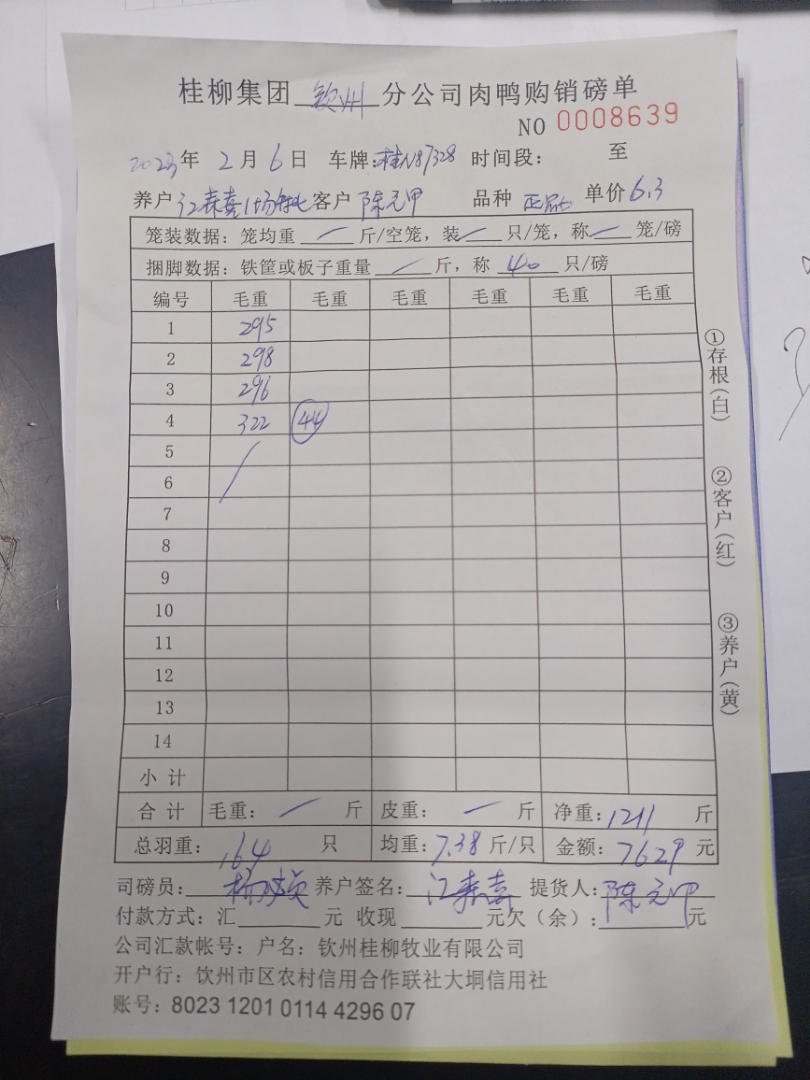 桂柳集团 钦州 分公司肉鸭购销磅单
NO 0008639
2023年 2月6日 车牌:桂N87328 时间段: 至
养户 江 客户 陈元甲 品种 正品 单价6.3
笼装数据:笼均重 斤/空笼,装 只/笼,称 笼/磅
捆脚数据:铁筐或板子重量 斤,称 40 只/磅
编号 毛重 毛重 毛重 毛重 毛重 毛重
1 295
2 298
3 296
4 322 44
5
6
7
8
9
10
11
12
13
14
小计
合计 毛重: 斤 皮重: 斤 净重:1211 斤
总羽重:164 只 均重:7.38斤/只 金额:7629元
司磅员:杨 养户签名:江 喜 提货人:陈元甲
付款方式:汇 元 收现 元欠(余): 元
公司汇款帐号:户名:钦州桂柳牧业有限公司
开户行:饮州市区农村信用合作联社大垌信用社
账号:8023 1201 0114 4296 07
①存根(白)
②客户(红)
③养户(黄)